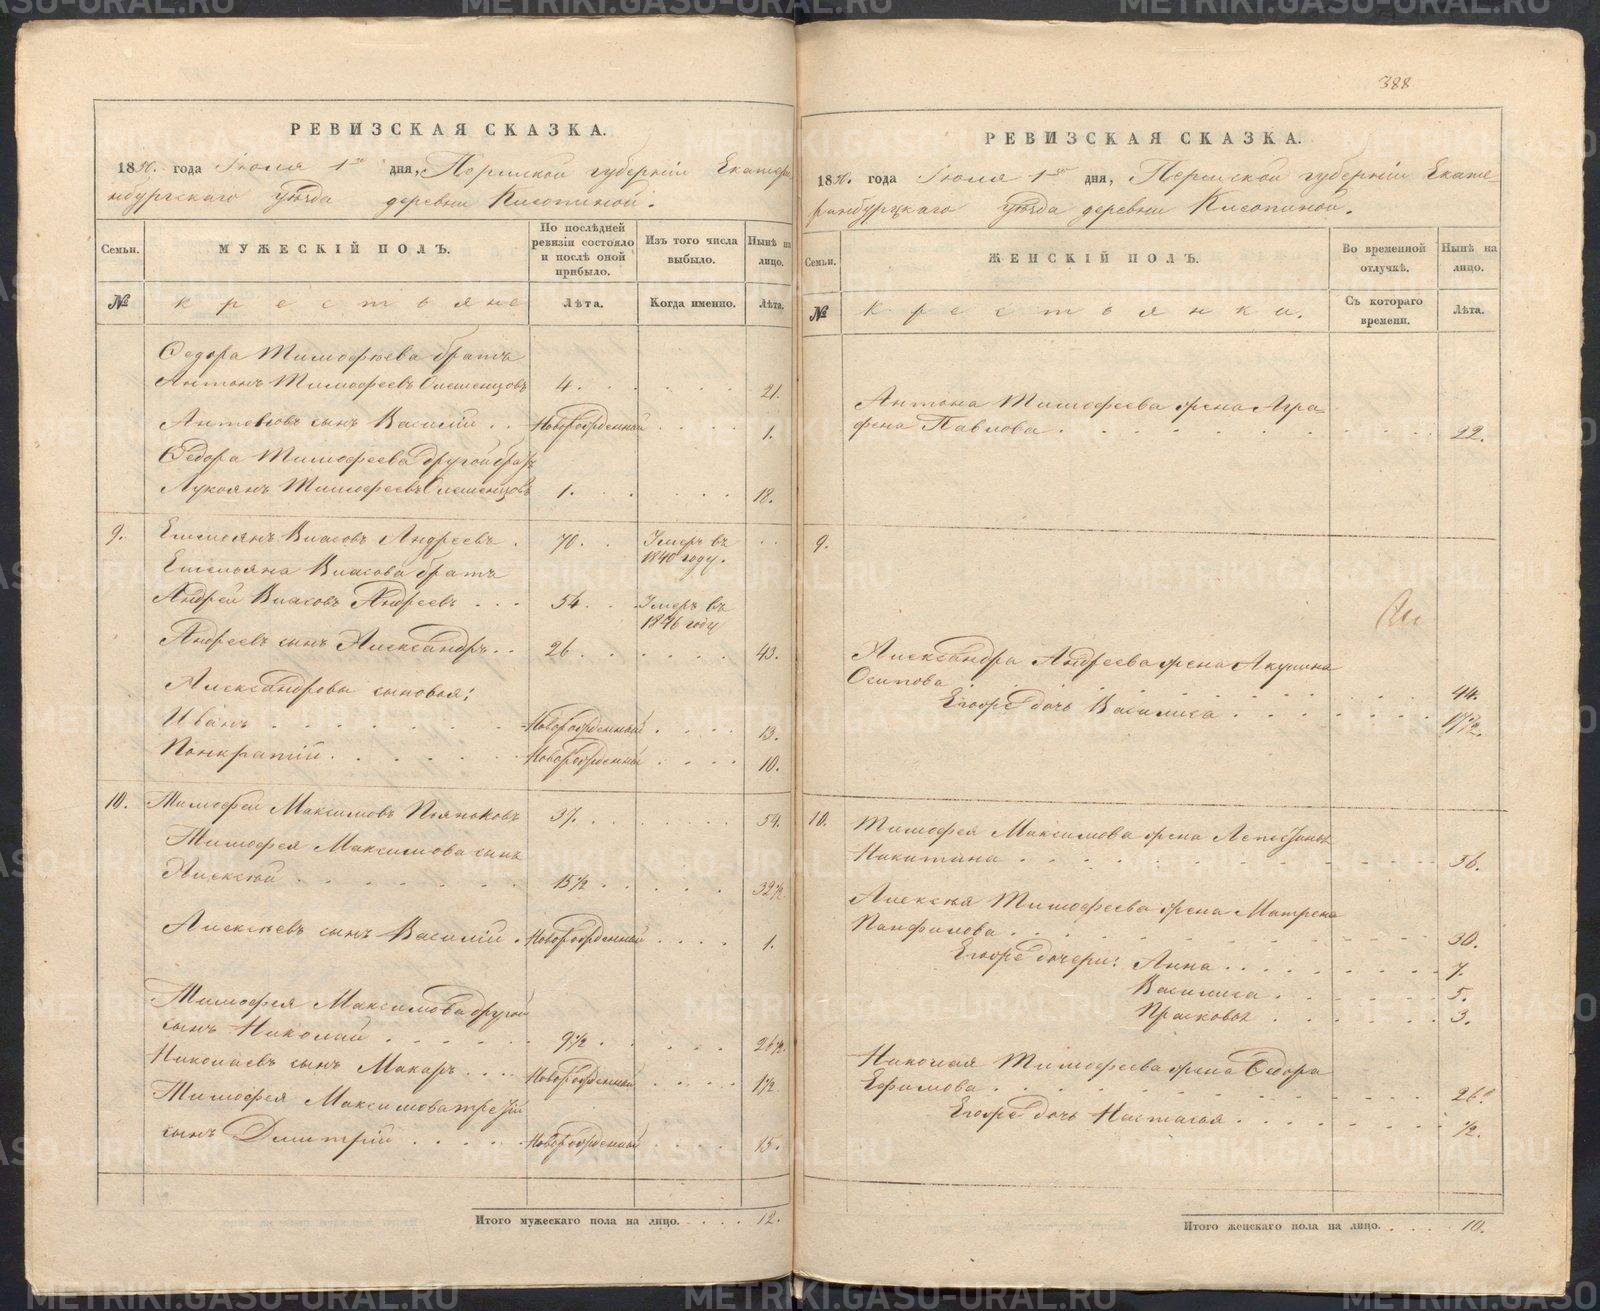 388
РЕВИЗСКАЯ СКАЗКА.
1850. года Іюля 1го дня, Пермской губерніи Екатери
нбургскаго уѣзда деревни Кисопиной.
Семьи.
МУЖЕСКІЙ ПОЛЪ.
По послѣдней ревизіи состояло и послѣ оной прибыло.
Изъ того числа выбыло.
Нынѣ на лицо.
№
крестьяне
Лѣта.
Когда именно.
Лѣта.
Федора Тимофеева братъ
Антонъ Тимофеевъ 4. 21.
Антоновъ сынъ Василій . . Новорожденный 1.
Федора Тимофеева другой братъ
Лукоянъ Тимофеевъ 1. 18.
9. Емельянъ Власовъ Андреевъ . 70. Умеръ въ
1840 году.
Емельяна Власова братъ
Андрей Власовъ Андреевъ . . . 54. Умеръ въ
1846 году
Андреевъ сынъ Александръ . . 26 43.
Александровы сыновья:
Иванъ Новорожденный 13.
Понкратій Новорожденный 10.
10. Тимофей Максимовъ Пьянковъ 37. 54.
Тимофея Максимова сынъ
Алексѣй 15½ 32½
Алексѣевъ сынъ Василій . Новорожденный 1.
Тимофея Максимова другой
сынъ Николай 9½ 26½.
Николаевъ сынъ Макаръ Новорожденный 1½
Тимофея Максимова третій
сынъ Дмитрій Новорожденный 15.
Итого мужескаго пола на лицо. 12.
РЕВИЗСКАЯ СКАЗКА.
1850. года Іюля 1го дня, Пермской губерніи Екате-
ринбургскаго уѣзда деревни Кисопиной.
Семьи.
ЖЕНСКІЙ ПОЛЪ.
Во временной отлучкѣ.
Нынѣ на лицо.
№
Крестьянки.
Съ котораго времени.
Лѣта.
Антона Тимофеева жена Агра-
фена Павлова 22.
9.
Александра Андреева жена Акулина
Осипова 44.
Егоже дочь Василиса 17½.
10. Тимофея Максимова жена
Никитина 56.
Алексѣя Тимофеева жена Матрена
Панфилова 30.
Егоже дочери: Анна 7.
Василиса 5.
Прасковья 3.
Николая Тимофеева жена Федора
Ефимова 26.
Егоже дочь Настасья ½.
Итого женскаго пола на лицо. 10.
METRIKI.GASO-URAL.RU